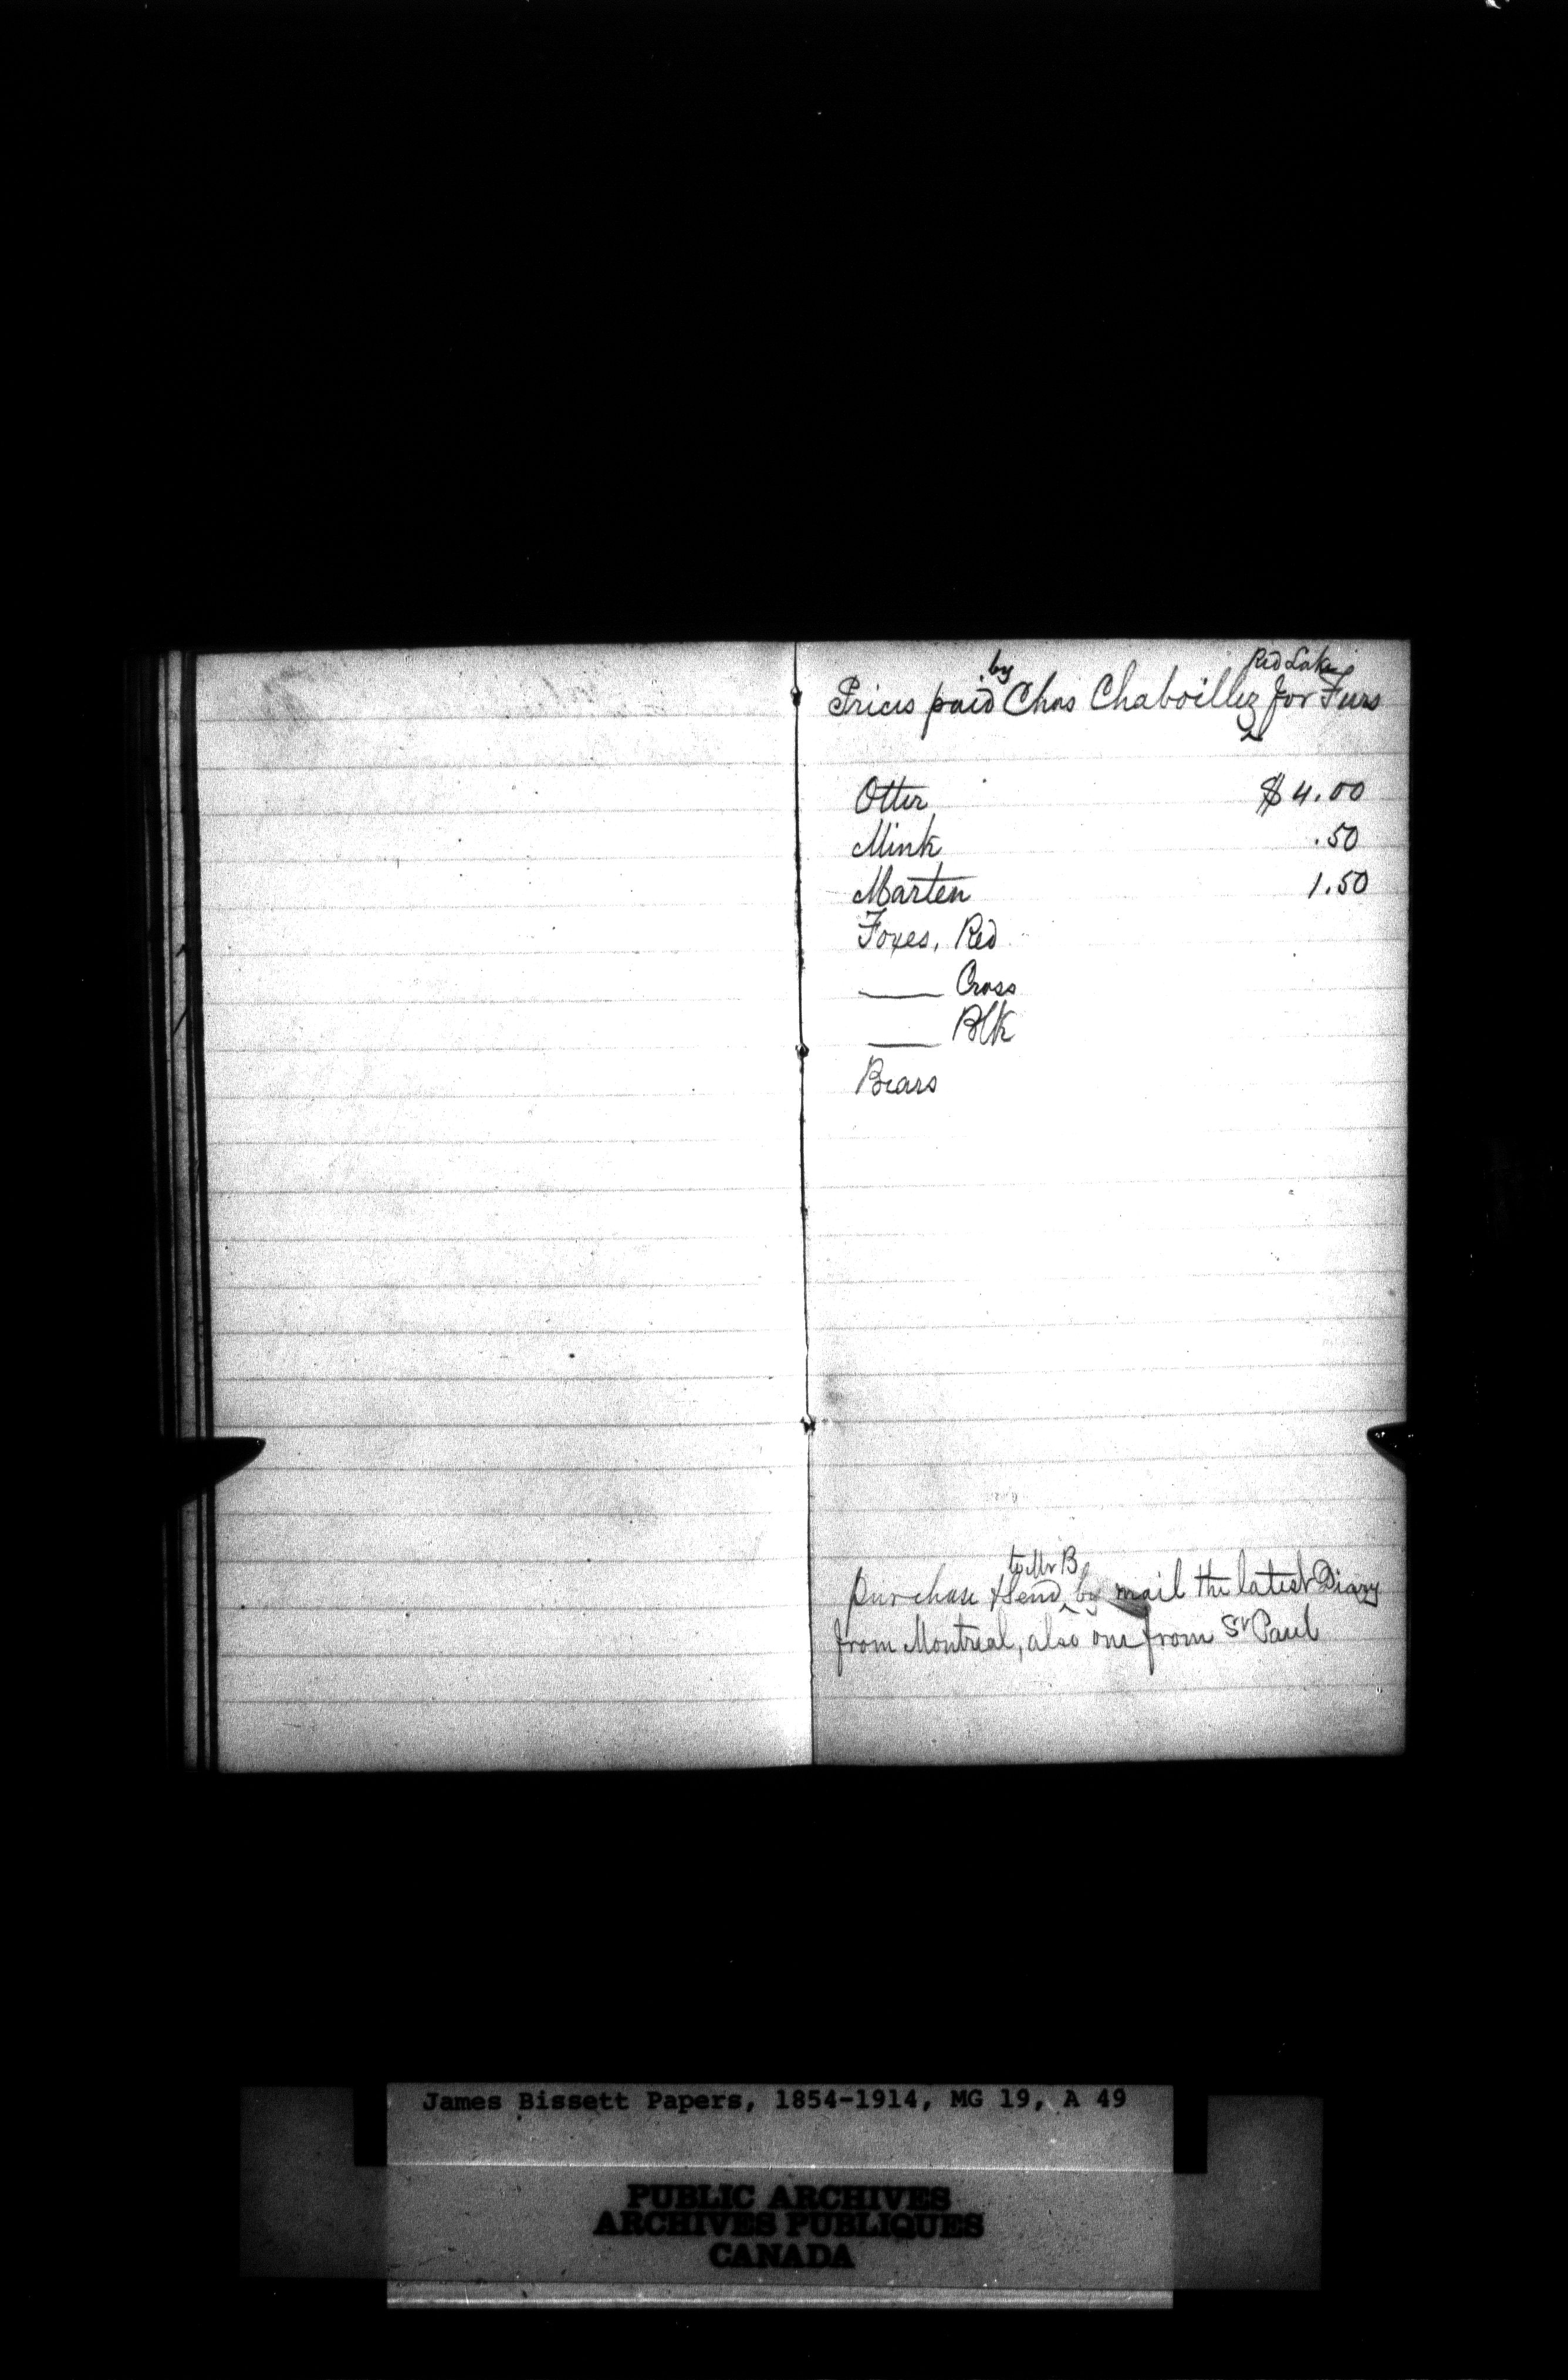 Prices paid by Chas Chaboillez Red Lake for Furs
Otter $4.00
Mink .50
Marten 1.50
Foxes, Red
____ Cross
____ Blk
Bears
Purchase & send to Mr B by mail the latest Diary
from Montreal, also one from St Paul
James Bissett Papers, 1854-1914, MG 19, A 49
PUBLIC ARCHIVES
ARCHIVES PUBLIQUES
CANADA